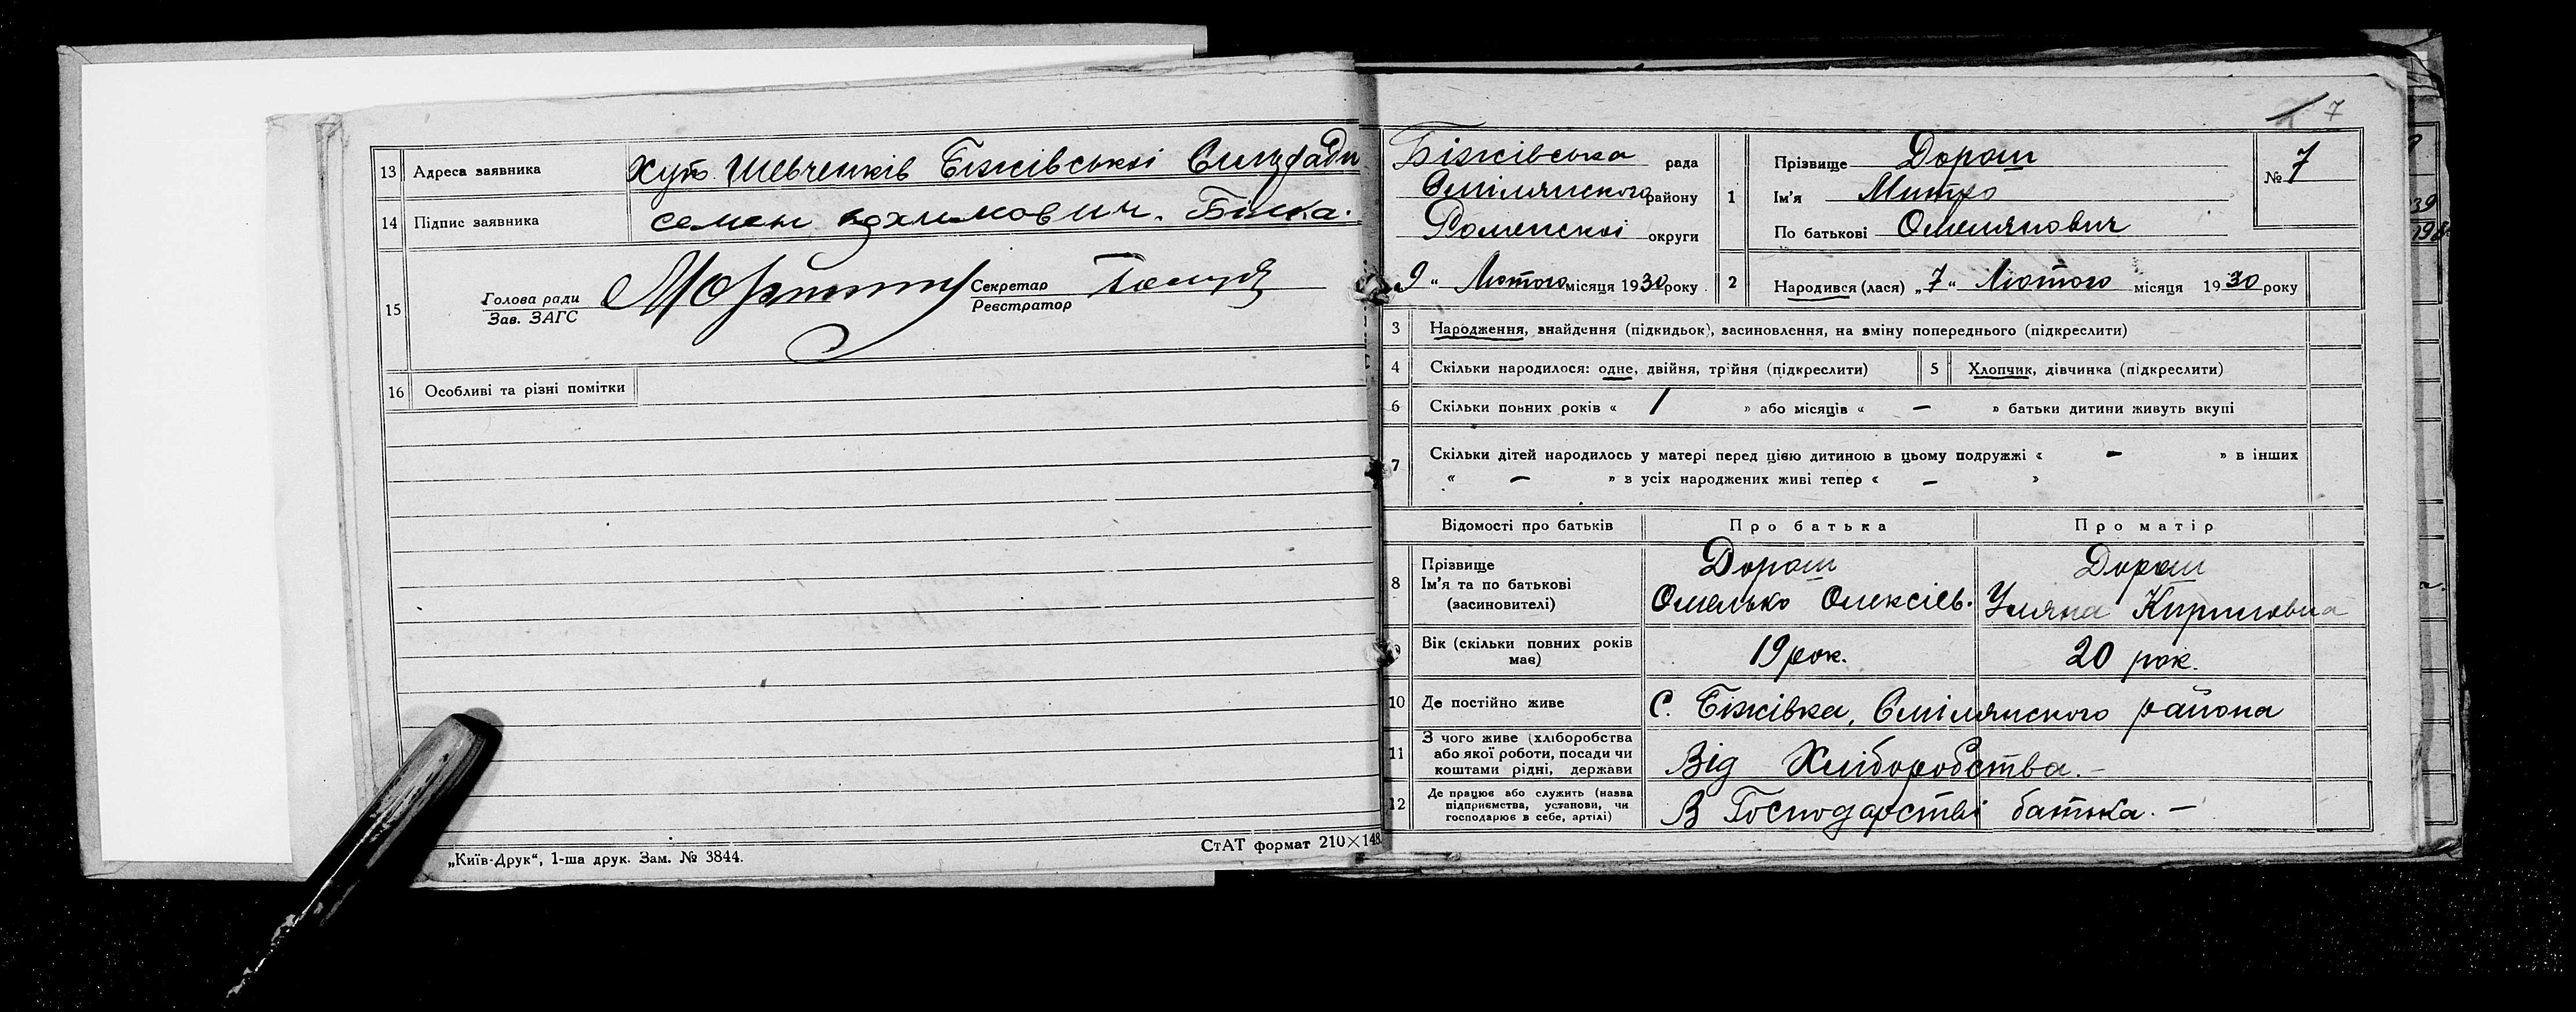 13 Адреса заявника Хут. Шевченків Біжівської Сільради
14 Підпис заявника семен Біжка.
15 Голова ради Секретар
Зав. ЗАГС Реєстратор
16 Особливі та різні помітки
„Київ-Друк“, 1-ша друк. Зам. № 3844.
СтАТ формат 210×148
7
Біжівська рада
Смілянского району
Роменскої округи
9 " Лютого місяця 1930 року
1 Прізвище Дораш
Ім'я Митро
По батькові Омелянович
№ 7
2 Народився (лася) „7" Лютого місяця 1930 року
3 Народження, знайдення (підкидьок), засиновлення, на зміну попереднього (підкреслити)
4 Скільки народилося: одне, двійня, трійня (підкреслити) 5 Хлопчик, дівчинка (підкреслити)
6 Скільки повних років « 1 » або місяців « — » батьки дитини живуть вкупі
7 Скільки дітей народилось у матері перед цією дитиною в цьому подружжі « — » в інших
« — » з усіх народжених живі тепер « — »
Відомості про батьків Про батька Про матір
8 Прізвище Дораш Дораш
Ім'я та по батькові
(засиновителі) Омелько Олексіев. Уляна Кириловна
9 Вік (скільки повних років
має) 19 рок. 20 рок.
10 Де постійно живе С. Біжівка, Смілянского района
11 З чого живе (хліборобства
або якої роботи, посади чи
коштами рідні, держави Від Хліборобства.—
12 Де працює або служить (назва
підприємства, установи, чи
господарює в себе, артілі) В Господарстві батька.—